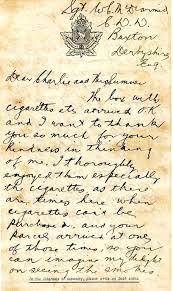 Sgt. W. C. McDiarmid
C. D. D.
Buxton
Derbyshire
Eng.
Dear Charlie and
The box with
cigarettes etc. arrived O.K
and I want to thank
you so much for your
kindness in thinking
of me. I thoroughly
enjoyed them especially
the cigarettes as there
are times here when
cigarettes can't be
purchased, and your
Parcel arrived at one
of those times, so you
can imagine my delight
on seeing the smokes
In the interests of economy, please write on both sides